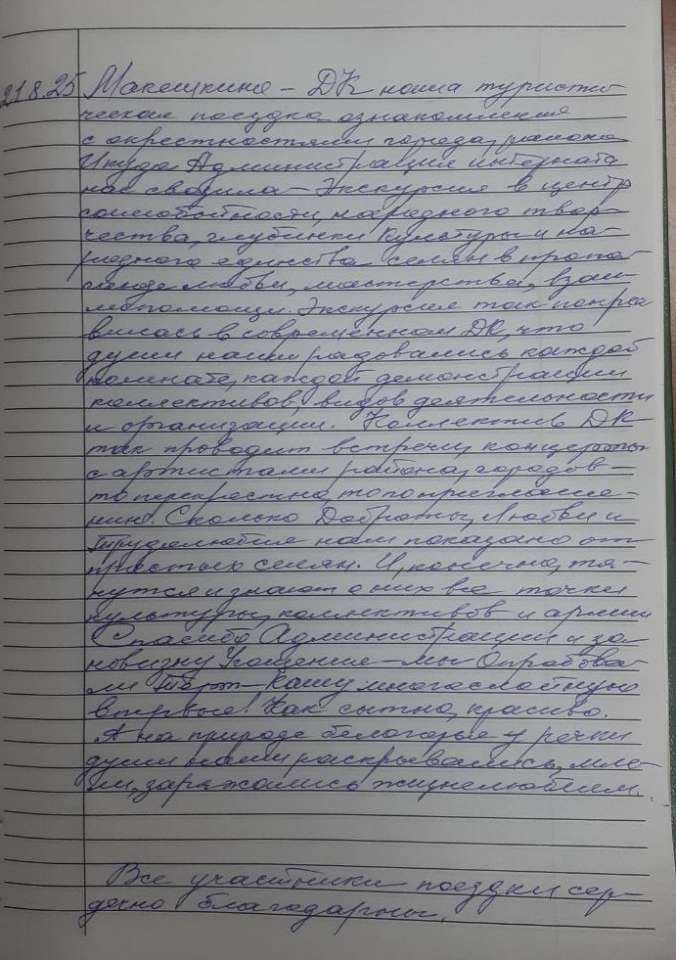 21.8.25 Макешкино – ДК наша туристи-
ческая поездка, ознакомления
с окрестностями города, района
Куда Администрация интерната
нас свозила – Экскурсия в центр
самобытности, народного твор-
чества, глубинки Культуры и на-
родного единства селян в пропа-
ганде любви, мастерства, взаи-
мопомощи. Экскурсия так понра-
вилась в современном ДК, что
души наши радовались каждой
комнате, каждой демонстрации
коллективов, видов деятельности
и организации. Коллектив ДК
так проводит встречи, концерты
с артистами района, городов –
то перекрестно, то по приглаше-
нию. Сколько Доброты, Любви и
Трудолюбия нам показано от
простых селян. И, конечно, тя-
нутся и знают о них все точки
культуры, коллективов и армии
Спасибо Администрации и за
новизну Угощение – мы Опробова-
ли Торт – Кашу многослойную
впервые! Как сытно, красиво.
А на природе белогорья у речки
души наши раскрывались, мле-
ли, заряжались жизнелюбием.
Все участники поездки сер-
дечно благодарны.